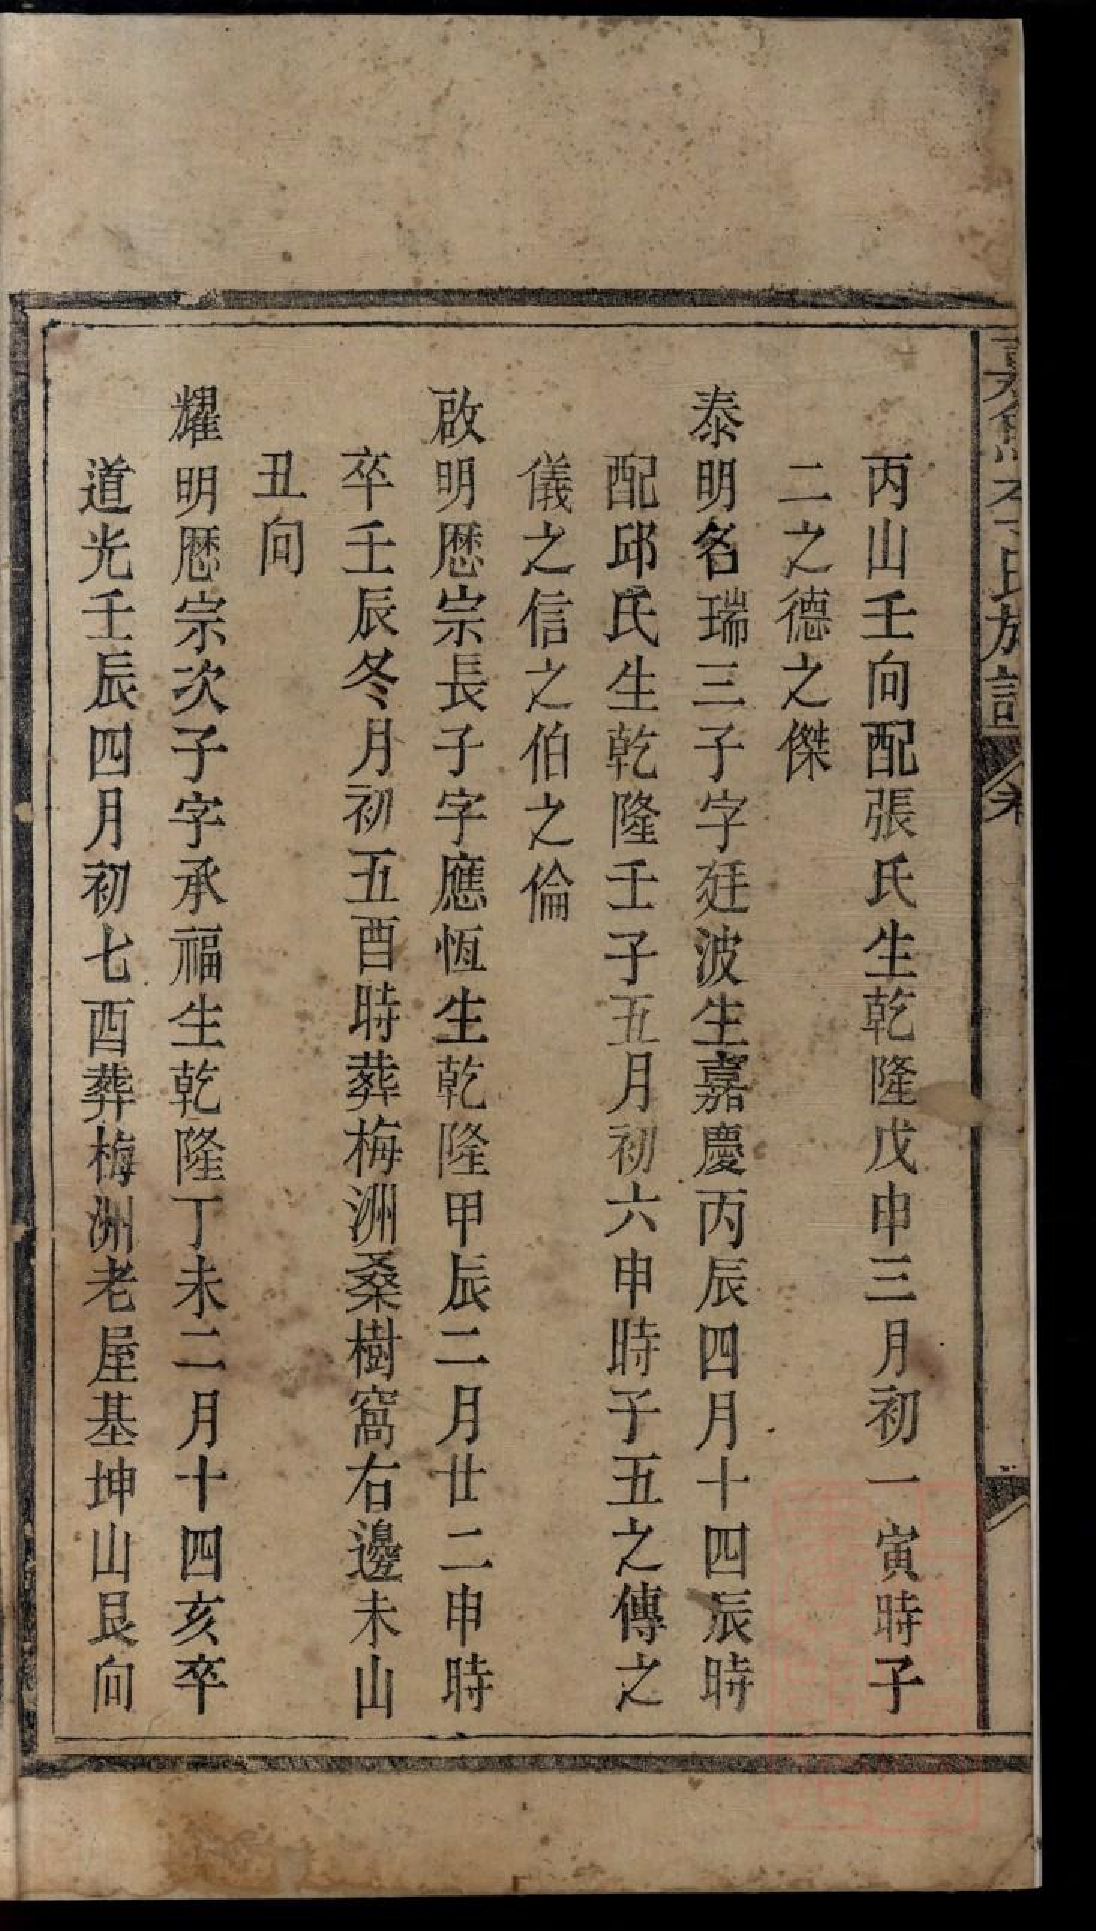 丙山壬向配張氏生乾隆戊申三月初一寅時子
二之德之傑
泰明名瑞三子字廷波生嘉慶丙辰四月十四辰時
配邱氏生乾隆壬子五月初六申時子五之傳之
儀之信之伯之倫
啟明厯宗長子字應恆生乾隆甲辰二月廿二申時
卒壬辰冬月初五酉時葬梅洲桑樹窩右邊未山
丑向
耀明厯宗次子字承福生乾隆丁未二月十四亥卒
道光壬辰四月初七酉葬梅洲老屋基坤山艮向